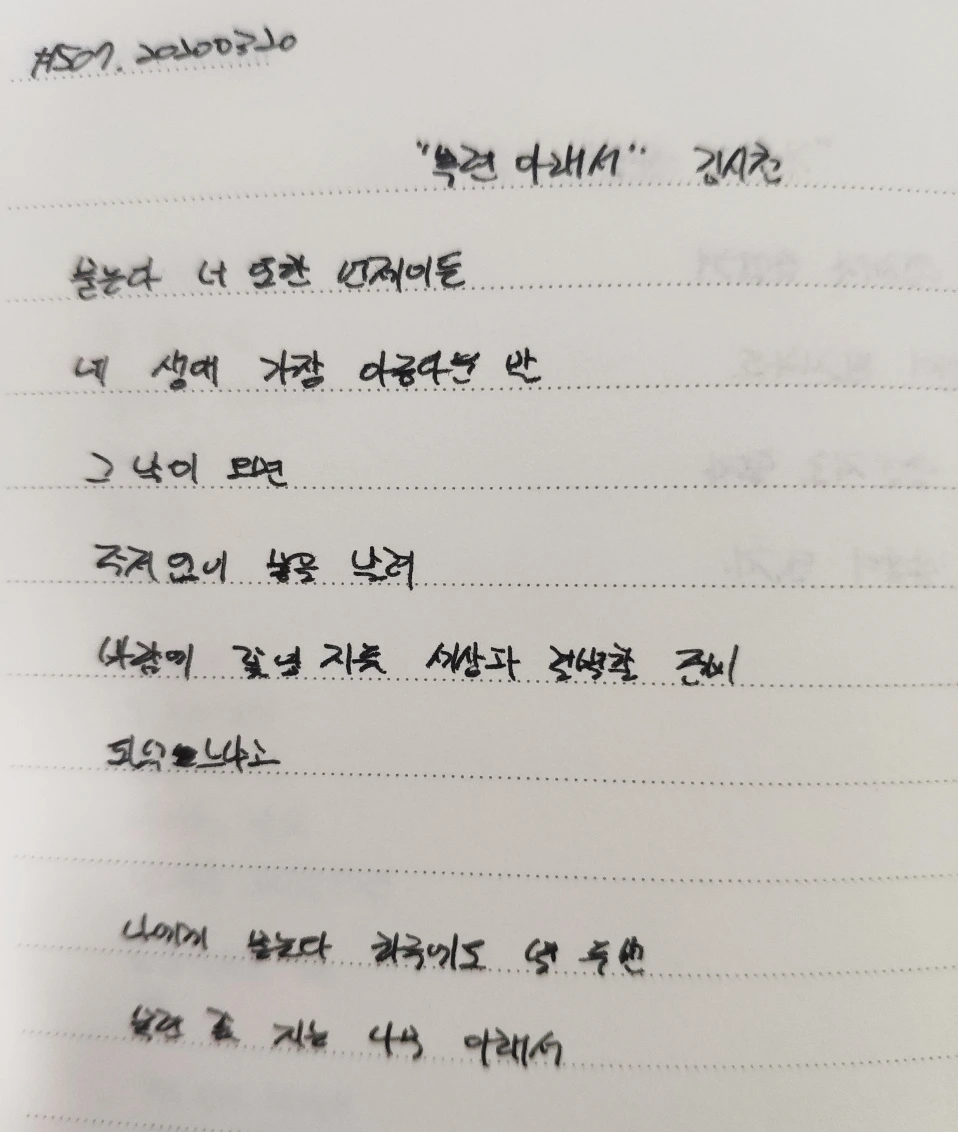 #507. 20200320
"목련 아래서" 김시천
묻는다 너 또한 언제이든
네 생애 가장 아름다운 날
그 날이 오면
주저없이 몸을 날려
바람에 꽃잎 지듯 세상과 결별할 준비
되었느냐고
나에게 묻는다 하루에도 열 두 번
목련 꽃 지는 나무 아래서